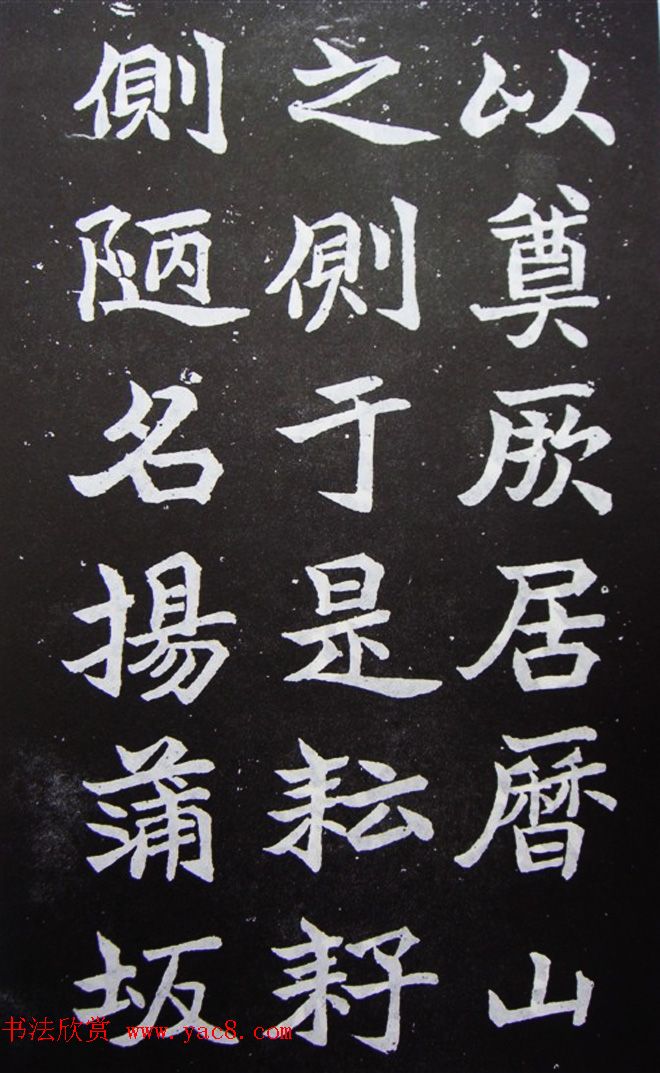 以奠厥居曆山
之側于是耘耔
側陋名揚蒲坂
书法欣赏 www.yac8.com